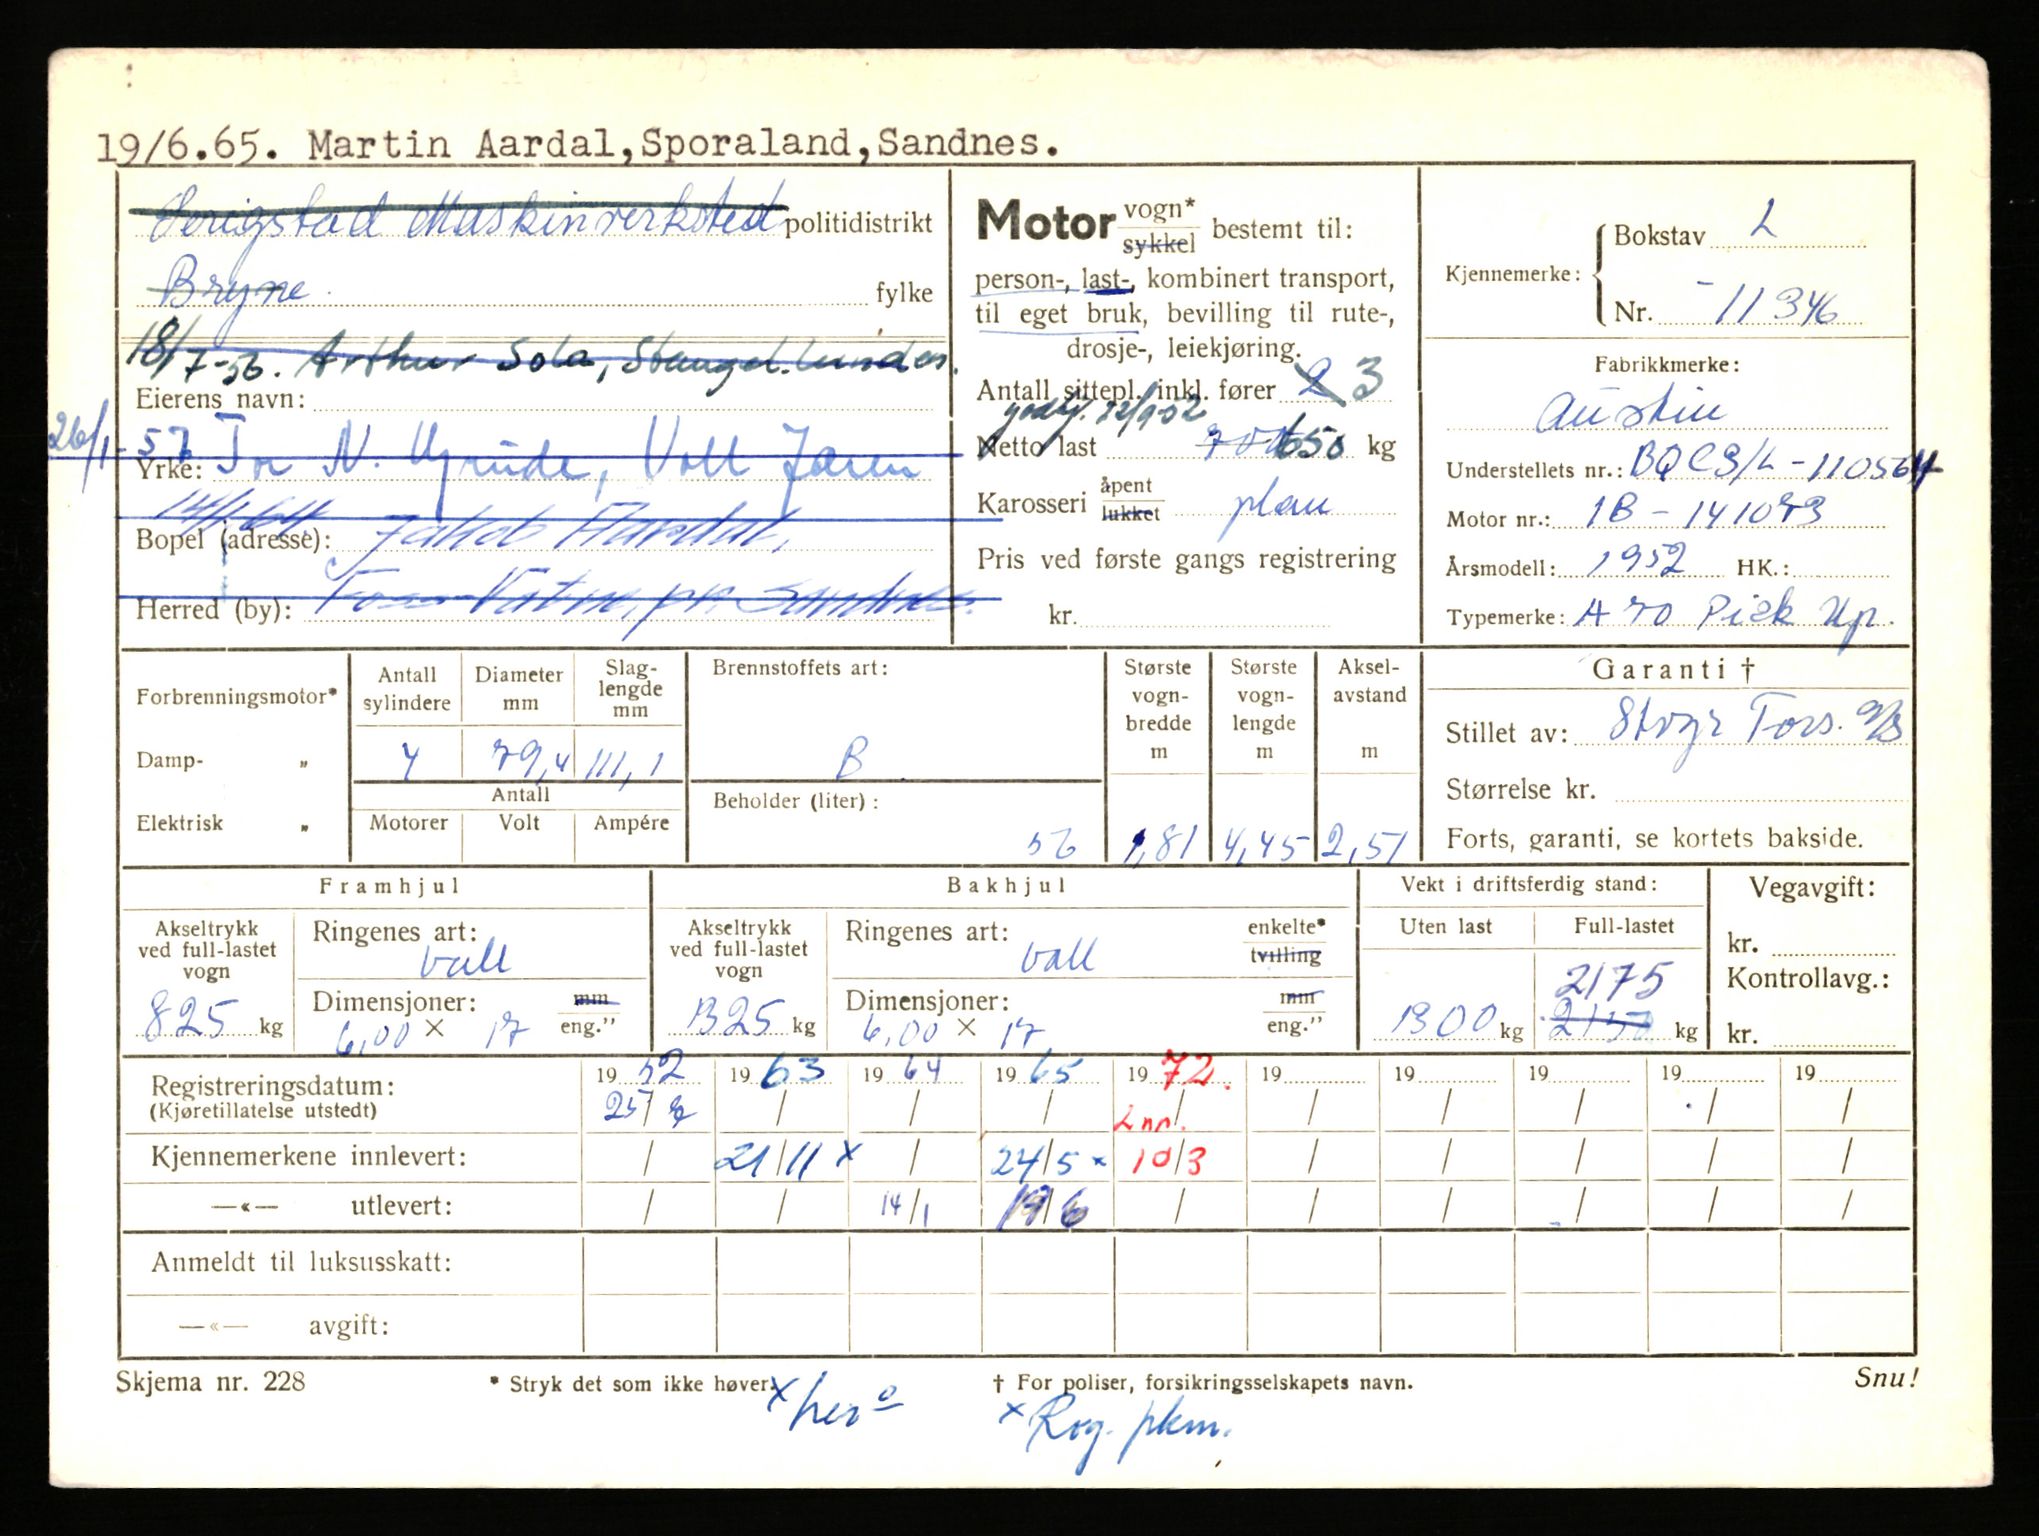 19/6.65. Martin Aardal,Sporaland,Sandnes.
Serigstad Maskinverksted politidistrikt
Bryne fylke
18/7-56. Arthur Sola, Stangel.
Eierens navn:
26/1-57
Yrke: Tor N. Vold Jæren
14/1-64
Bopel (adresse): Jakob Aardal,
Herred (by): Foss-Vatne, pr. Sandnes.
Motor vogn* sykkel bestemt til:
person-, last-, kombinert transport,
til eget bruk, bevilling til rute-,
drosje-, leiekjøring.
Antall sittepl. inkl. fører 2 3
godkj. 22/9-52
Netto last 700 650 kg
Karosseri åpent lukket plan
Pris ved første gangs registrering
kr.
Kjennemerke: Bokstav L
Nr. -11346
Fabrikkmerke:
Austin
Understellets nr.: BQCS/L-110564
Motor nr.: 1B-141073
Årsmodell: 1952 HK.:
Typemerke: A 70 Pick Up.
Forbrenningsmotor*
Damp- „
Elektrisk „
Antall sylindere
Diameter mm
Slaglengde mm
4 79,4 111,1
Antall
Motorer Volt Ampére
Brennstoffets art:
B
Beholder (liter):
56
Største vognbredde m
1,81
Største vognlengde m
4,45
Akselavstand m
2,51
Garanti †
Stillet av: Stvgr Fors. A/S
Størrelse kr.
Forts, garanti, se kortets bakside.
Framhjul
Akseltrykk ved full-lastet vogn
825 kg
Ringenes art:
ball
Dimensjoner: mm eng.”
6,00 x 17
Bakhjul
Akseltrykk ved full-lastet vogn
1325 kg
Ringenes art: enkelte* tvilling
ball
Dimensjoner: mm eng.”
6,00 x 17
Vekt i driftsferdig stand:
Uten last Full-lastet
2175
1300 kg 2150 kg
Vegavgift:
kr.
Kontrollavg.:
kr.
Registreringsdatum: 1952 1963 1964 1965 1972. 19 19 19 19 19
(Kjøretillatelse utstedt) 25/ / / / / / / / / /
L nr.
Kjennemerkene innlevert: / 21/11 x / 24/5 x 10/3 / / / / /
—«— utlevert: / / 14/1 19/6 / / / / / /
Anmeldt til luksusskatt:
—«— avgift:
Skjema nr. 228
* Stryk det som ikke høver.
† For poliser, forsikringsselskapets navn.
Snu!
x her
x Rog. pkm.